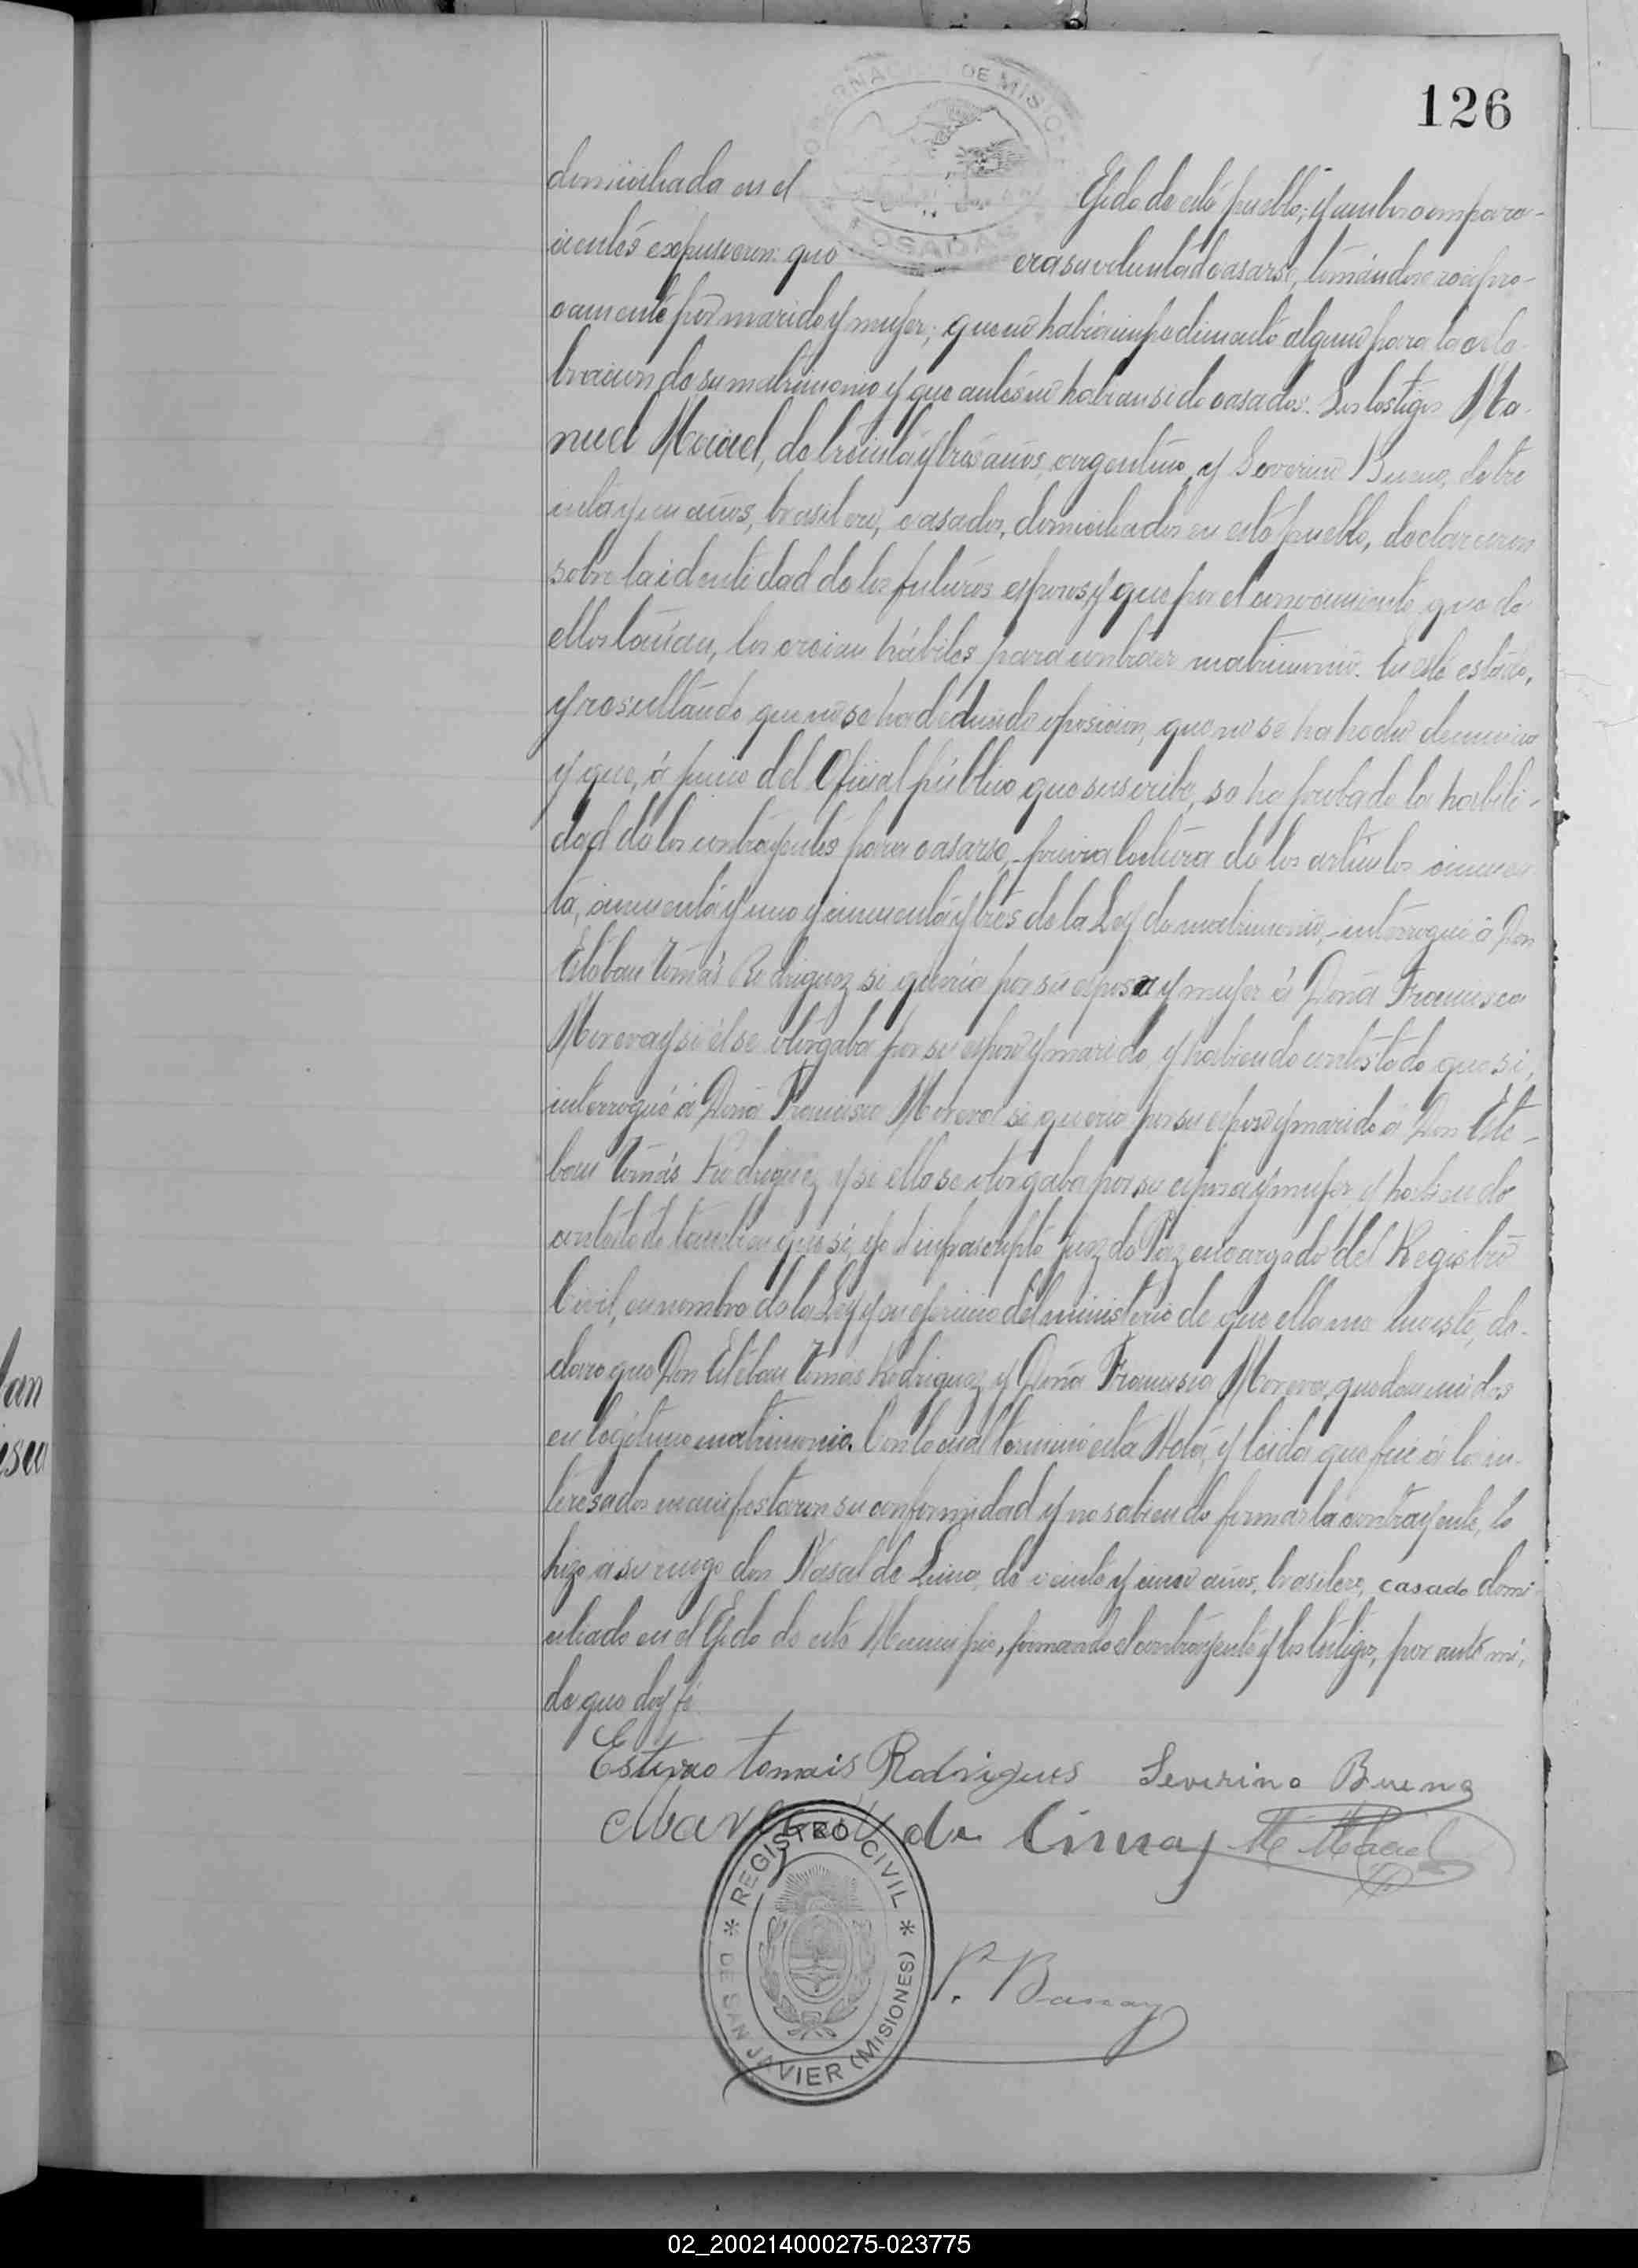 126
GOBERNACION DE MISIONES
POSADAS
domiciliada en el Ejido de este pueblo; y ambos compare-
cientes expusieron: que era su voluntad casarse, tomándose recípro-
camente por marido y mujer; que no había impedimento alguno para la cele-
bracion de su matrimonio y que antes no habian sido casados. Los testigos Ma-
nuel Maciel, de treinta y tres años, argentino, y Severino Bueno, de tre
inta y un años, brasilero, casados, domiciliados en este pueblo, declararon
sobre la identidad de los futuros esposos, y que por el conocimiento que de
ellos tenían, los creian hábiles para contraer matrimonio. En este estado,
y resultando que no se ha deducido oposicion, que no se ha hecho denuncia
y que, á juicio del Oficial público que suscribe, se ha probado la habili-
dad de los contrayentes para casarse, previa lectura de los artículos cincuen
ta, cincuenta y uno y cincuenta y tres de la Ley de matrimonio, interrogué á Don
Estéban Tomás Rodriguez si quería por su esposa y mujer á Doña Francisca
Morera y si él se otorgaba por su esposo y marido, y habiendo contestado que si,
interrogué á Doña Francisca Morera si queria por su esposo y marido á Don Esté-
ban Tomás Rodriguez y si ella se otorgaba por su esposa y mujer, y habiendo
contestado tambien que si, yo el infrascripto Juez de Paz encargado del Registro
Civil, en nombre de la Ley y en ejercicio del ministerio de que ella me inviste, de-
claro que Don Estéban Tomás Rodriguez y Doña Francisca Morera, quedan unidos
en legítimo matrimonio. Con lo cual terminó esta Acta, y leida que fué á los in-
teresados manifestaron su conformidad y no sabiendo firmar la contrayente, lo
hizo á su ruego don de Lima, de veinte y cinco años, brasilero, casado domi
ciliado en el Ejido de este Municipio, firmando el contrayente y los testigos, por ante mí,
de que doy fé.
Estevao tomais Rodrigues Severino Bueno
de Lima M Maciel
REGISTRO CIVIL
DE SAN JAVIER (MISIONES)
lan
isca
02_200214000275-023775